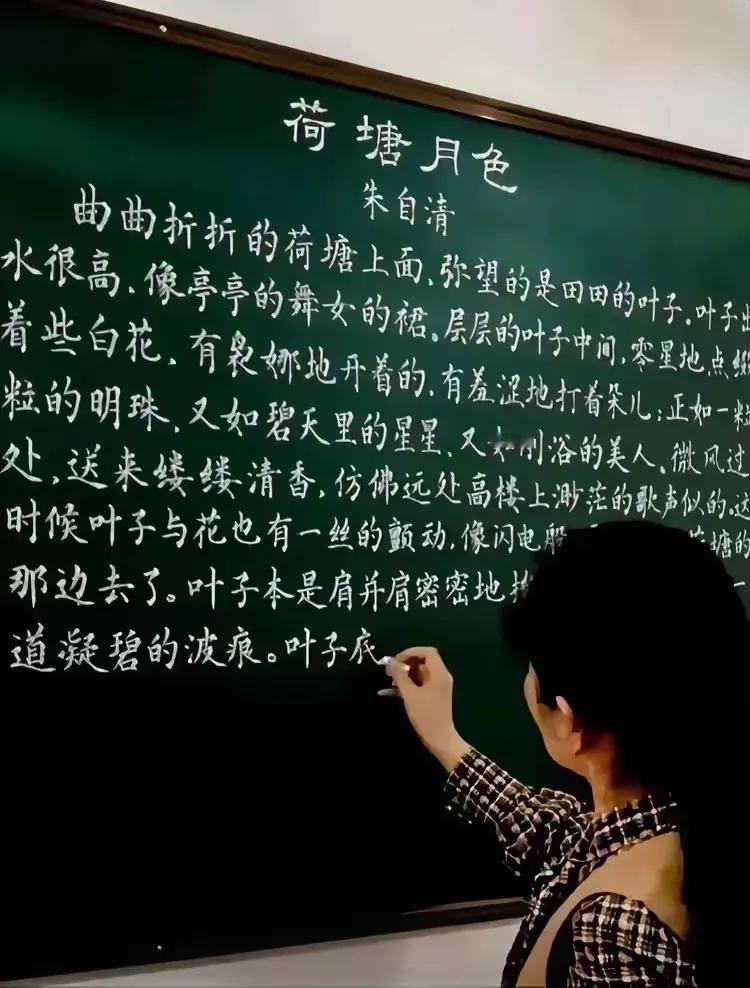 荷塘月色
朱自清
曲曲折折的荷塘上面、弥望的是田田的叶子。叶子出
水很高、像亭亭的舞女的裙。层层的叶子中间,零星地点缀
着些白花,有袅娜地开着的,有羞涩地打着朵儿;正如一粒
粒的明珠,又如碧天里的星星,又如刚浴的美人。微风过
处,送来缕缕清香,仿佛远处高楼上渺茫的歌声似的。这
时候叶子与花也有一丝的颤动,像闪电般 荷塘的
那边去了。叶子本是肩并肩密密地挨 一
道凝碧的波痕。叶子底